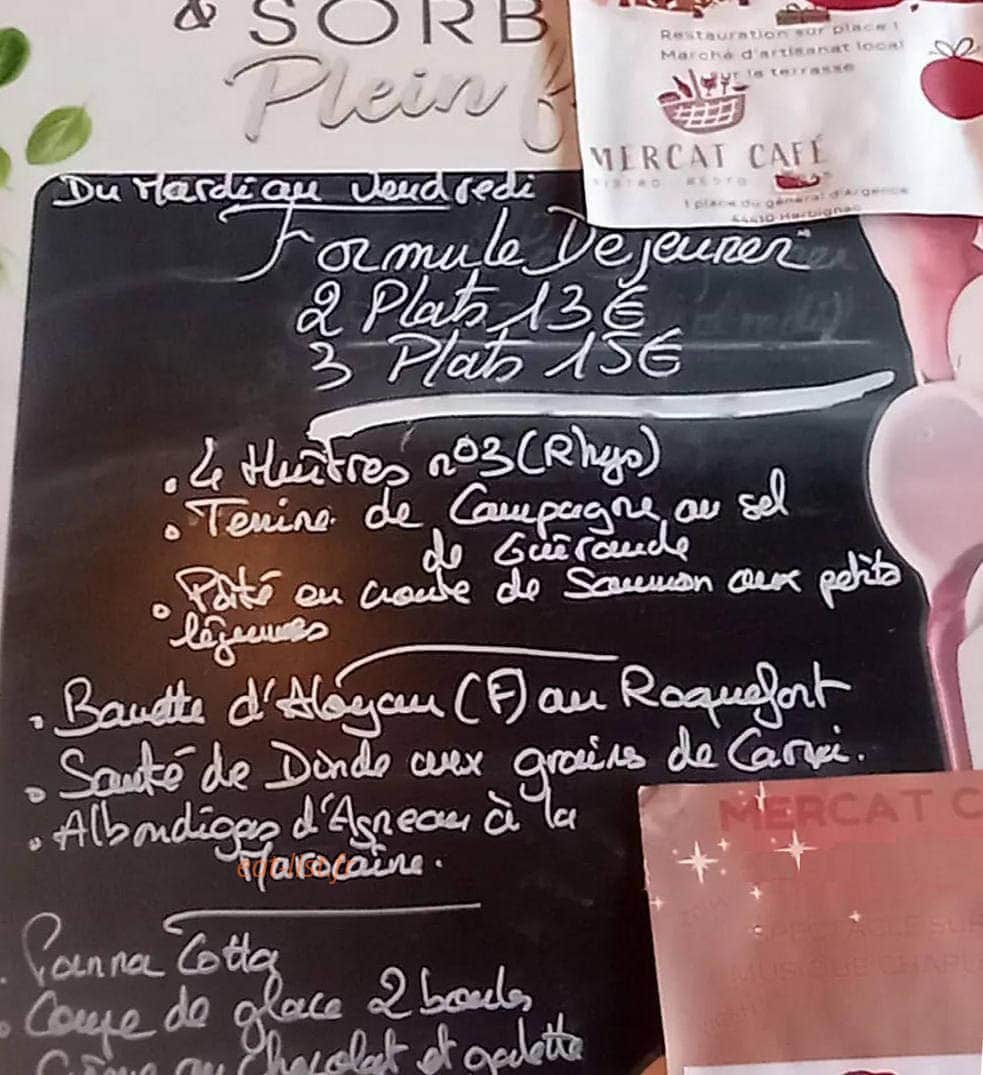 & SORB
Plein f
Restauration sur place !
Marché d'artisanat local
sur la terrasse
MERCAT CAFÉ
BISTRO RESTO
1 place du général d'Argence
44410 Herbignac
Du Mardi au Vendredi
Formule Dejeuner
2 Plats 13€
3 Plats 15€
. 4 Huîtres n°3 (Rhys)
. Terrine de Campagne au sel
de Guérande
. Pâté en croute de Saumon aux petits
légumes
. Bavette d'Aloyau (F) au Roquefort
. Sauté de Dinde aux grains de Carvi.
. Albondigas d'Agneau à la
Marocaine.
eatlist.fr
. Panna Cotta
. Coupe de glace 2 boules
Crème au Chocolat et galette
MERCAT C
SPECTACLE SUR
MUSIQUE CHAPL